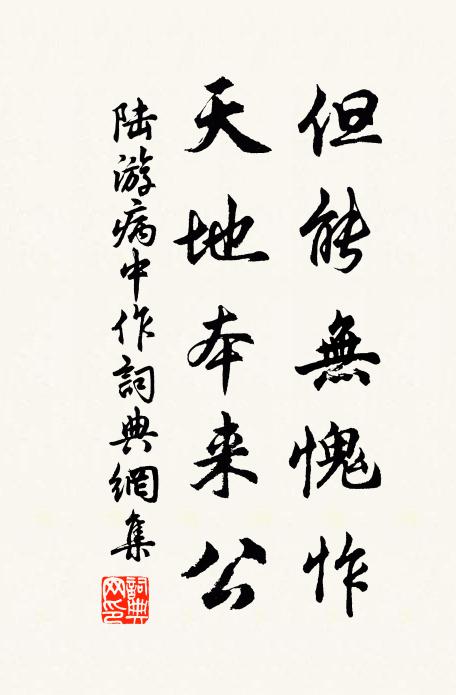 但能無愧怍
天地本来公
陆游病中作詞典網集
詞典网印